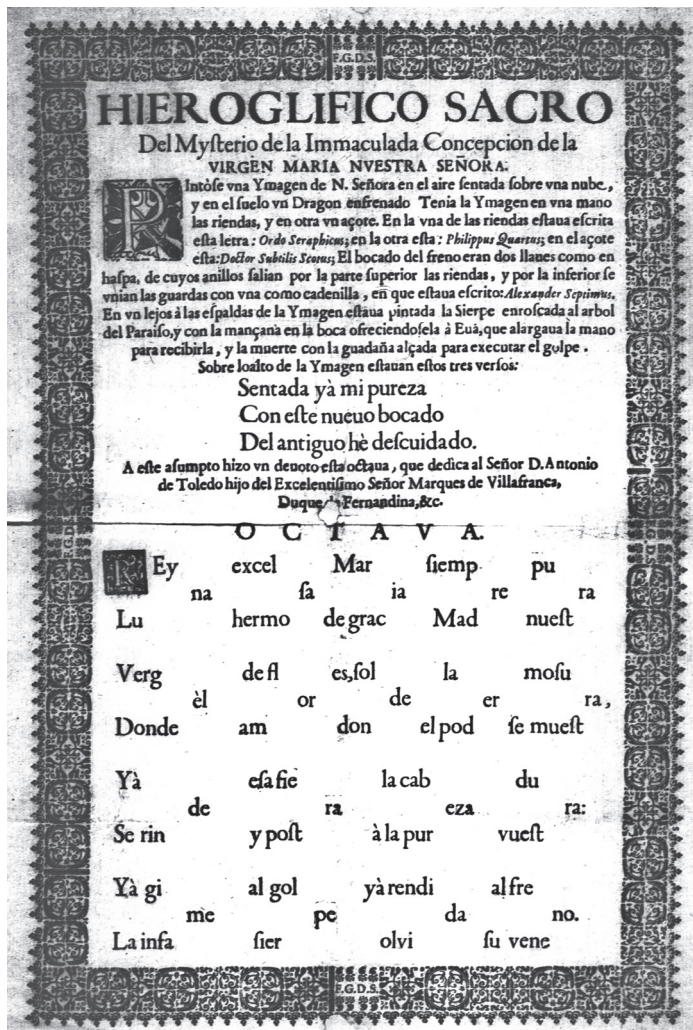 F.G.D.S.
HIEROGLIFICO SACRO
Del Myſterio de la Immaculada Concepcion de la
VIRGEN MARIA NVESTRA SEÑORA.
PIntòſe vna Ymagen de N. Señora en el aire ſentada ſobre vna nube,
y en el ſuelo vn Dragon enfrenado Tenia la Ymagen en vna mano
las riendas, y en otra vn açote. En la vna de las riendas eſtaua eſcrita
eſta letra: Ordo Seraphicus; en la otra eſta: Philippus Quartus; en el açote
eſta: Doctor Subtilis Scotus; El bocado del freno eran dos llaues como en
haſpa, de cuyos anillos ſalian por la parte ſuperior las riendas, y por la inferior ſe
vnian las guardas con vna como cadenilla, en que eſtaua eſcrito: Alexander Septimus.
En vn lejos à las eſpaldas de la Ymagen eſtaua pintada la Sierpe enroſcada al arbol
del Paraiſo, y con la mançana en la boca ofreciendoſela à Eua, que alargaua la mano
para recibirla, y la muerte con la guadaña alçada para executar el golpe.
Sobre loalto de la Ymagen eſtauan eſtos tres verſos:
Sentada yà mi pureza
Con eſte nueuo bocado
Del antiguo hè deſcuidado.
A eſte aſumpto hizo vn deuoto eſta octaua, que dedica al Señor D. Antonio
de Toledo hijo del Excelentiſimo Señor Marques de Villafranca,
Duque de Fernandina, &c.
OCTAVA.
REy excel Mar ſiemp pu
na ſa ia re ra
Lu hermo de grac Mad nueſt
Verg de fl es, ſol la moſu
èl or de er ra,
Donde am don el pod ſe mueſt
Yà eſa fie la cab du
de ra eza ra:
Se rin y poſt à la pur vueſt
Yà gi al gol yà rendi al fre
me pe da no.
La infa ſier olvi ſu vene
F.G.D.S.
F.G.D.S.
F.G.D.S.